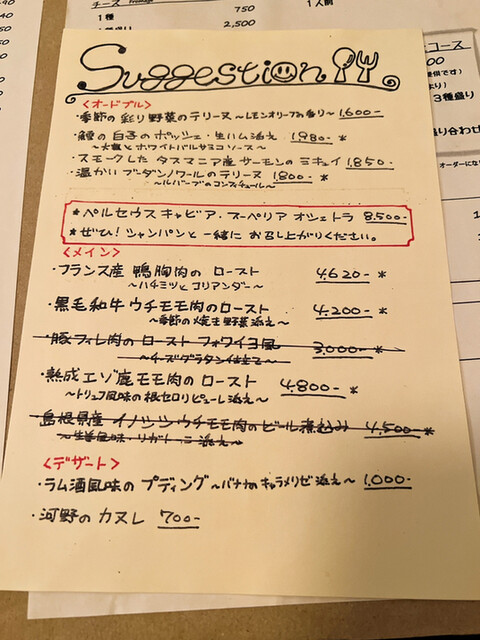 チーズ Fromage
1種 750
1人前
Suggestion
<オードブル>
・季節の彩り野菜のテリーヌ ～レモンオリーブの香り～ 1.600-
・鱈の白子のポッシェ・生ハム添え 1.980- *
～大葱とホワイトバルサミコソース～
・スモークした タスマニア産サーモンのミキュイ 1.850-
・温かい ブーダンノワールのテリーヌ 1.800- *
～ルバーブのコンフィチュール～
★ペルセウス キャビア・スーペリア オシェトラ 8.500-
★ぜひ！シャンパンと一緒に お召し上がりください。
<メイン>
・フランス産 鴨胸肉の ロースト 4.620- *
～ハチミツとコリアンダー～
・黒毛和牛 ウチモモ肉のロースト 4.200- *
～季節の焼き野菜添え～
・豚フィレ肉の ロースト フォワイヨ風 3.000- *
～チーズグラタン仕立て～
・熟成エゾ鹿モモ肉の ロースト 4.800- *
～トリュフ風味の根セロリピューレ添え～
島根県産 イノシシウチモモ肉のビール煮込み 4.500- *
～生姜風味・リガトーニ添え～
<デザート>
・ラム酒風味の プディング ～バナナのキャラメリゼ添え～ 1.000-
・河野の カヌレ 700-
コース
3種盛り
盛り合わせ